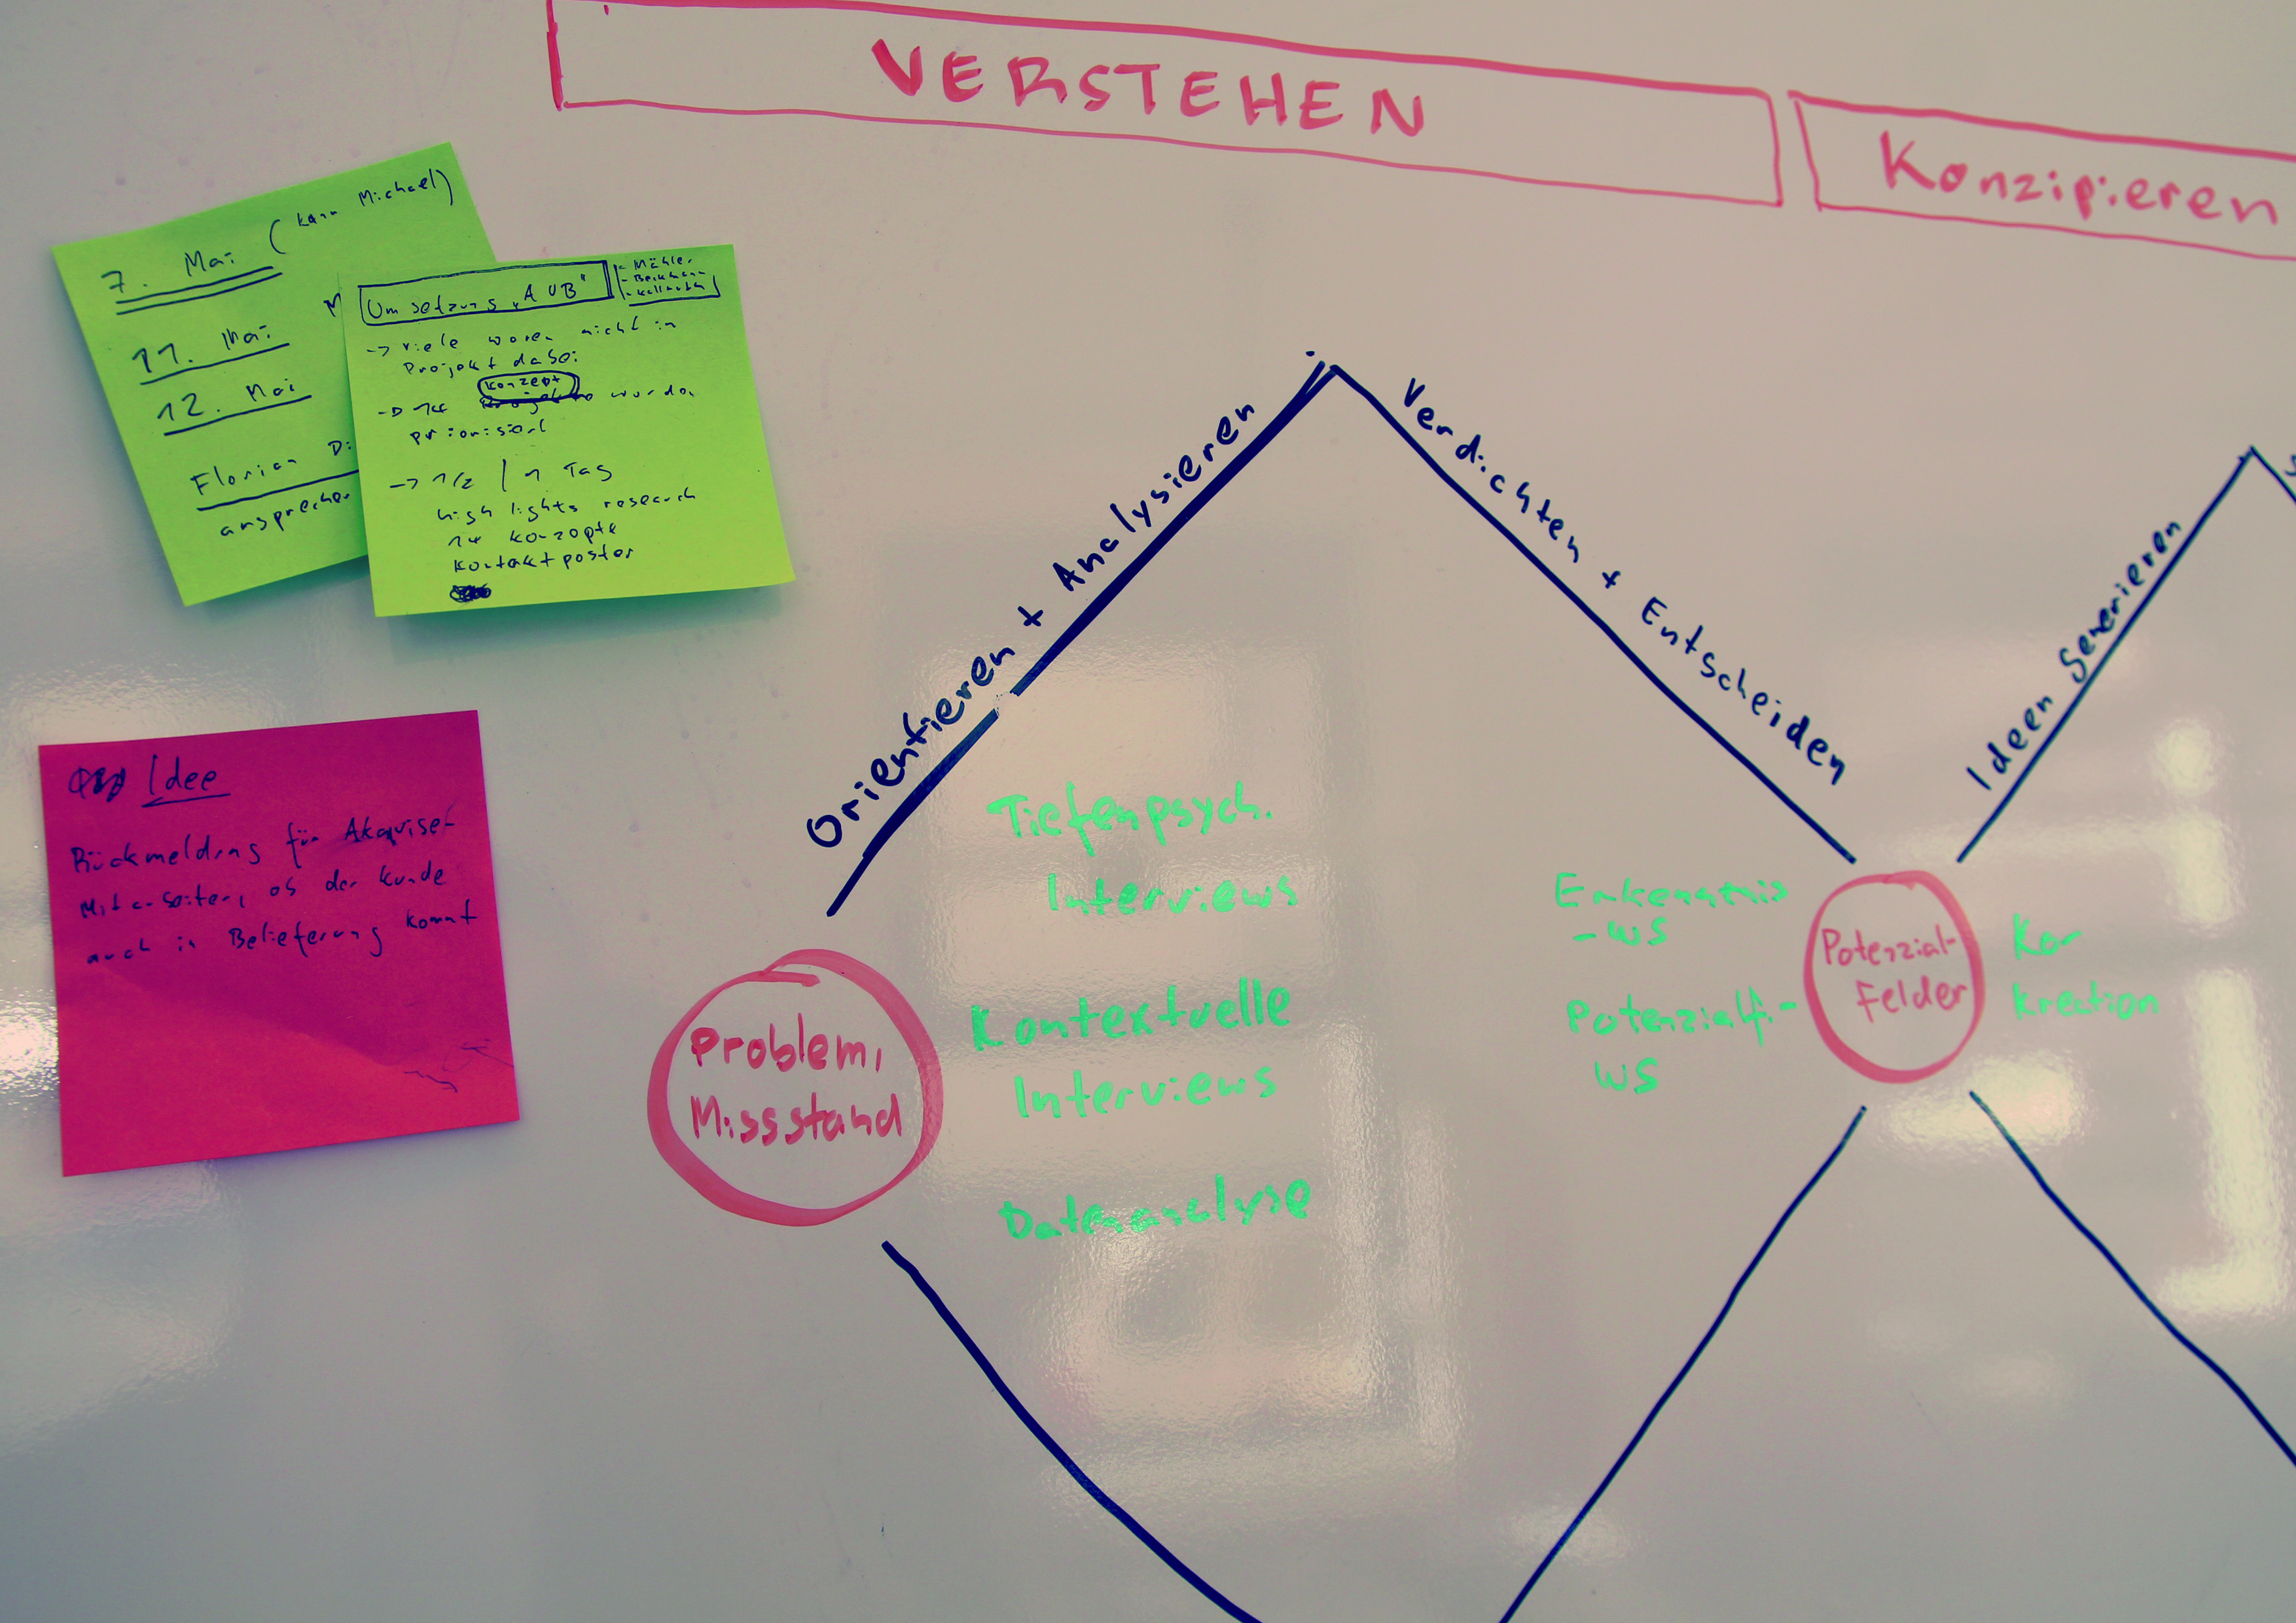 VERSTEHEN
Konzipieren
7. Mai (kann Michael)
11. Mai
12. Mai
Florian Di
ansprechen
Umsetzung "AUB"
- Mähler
→ viele waren nicht in
Projekt dabei
Konzept
→ 14 wurden
priorisiert
→ 1/2 / 1 Tag
highlights research
14 Konzepte
Kontaktposter
Idee
Rückmeldung für Akquise-
Mitarbeiter, ob der Kunde
auch in Belieferung kommt
Orientieren + Analysieren
Verdichten + Entscheiden
Ideen generieren
Problem,
Missstand
Tiefenpsych.
Interviews
Kontextuelle
Interviews
Datenanalyse
Erkenntnis
-WS
Potenzialf.-
WS
Potenzial-
Felder
Ko-
kreation